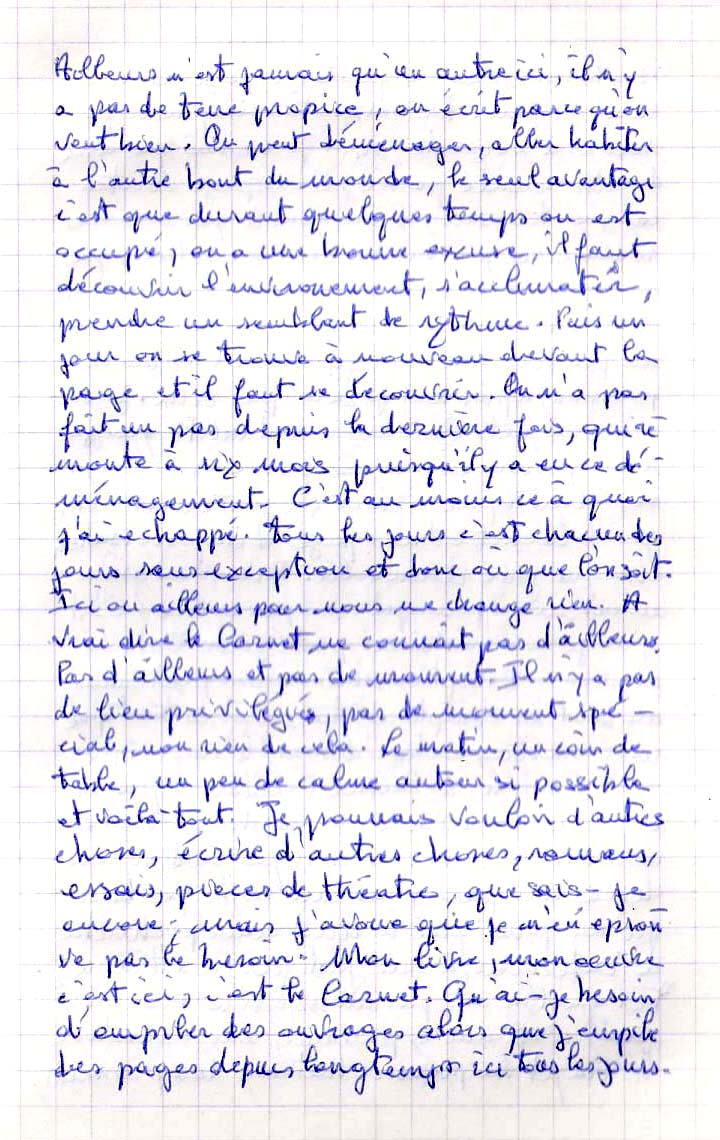 Ailleurs n'est jamais qu'un autre ici, il n'y
a pas de terre propice, on écrit parce qu'on
veut bien. On peut déménager, aller habiter
à l'autre bout du monde, le seul avantage
c'est que durant quelques temps on est
occupé, on a une bonne excuse, il faut
découvrir l'environnement, s'acclimater,
prendre un semblant de rythme. Puis un
jour on se trouve à nouveau devant la
page et il faut se découvrir. On n'a pas
fait un pas depuis la dernière fois, qui re
monte à six mois puisqu'il y a eu ce dé-
ménagement. C'est au moins ce à quoi
j'ai echappé. Tous les jours c'est chacun des
jours sans exception et donc où que l'on soit.
Ici ou ailleurs pour nous ne change rien. A
vrai dire le Carnet ne connait pas d'ailleurs.
Pas d'ailleurs et pas de moment. Il n'y a pas
de lieu privilégié, pas de moment spé-
cial, non rien de cela. Le matin, un coin de
table, un peu de calme autour si possible
et voilà tout. Je pourrais vouloir d'autres
choses, écrire d'autres choses, romans,
essais, pièces de théatre, que sais-je
encore; mais j'avoue que je n'en eprou
ve pas le besoin. Mon livre, mon oeuvre
c'est ici, c'est le Carnet. Qu'ai-je besoin
d'empiler des ouvrages alors que j'empile
les pages depuis longtemps ici tous les jours.